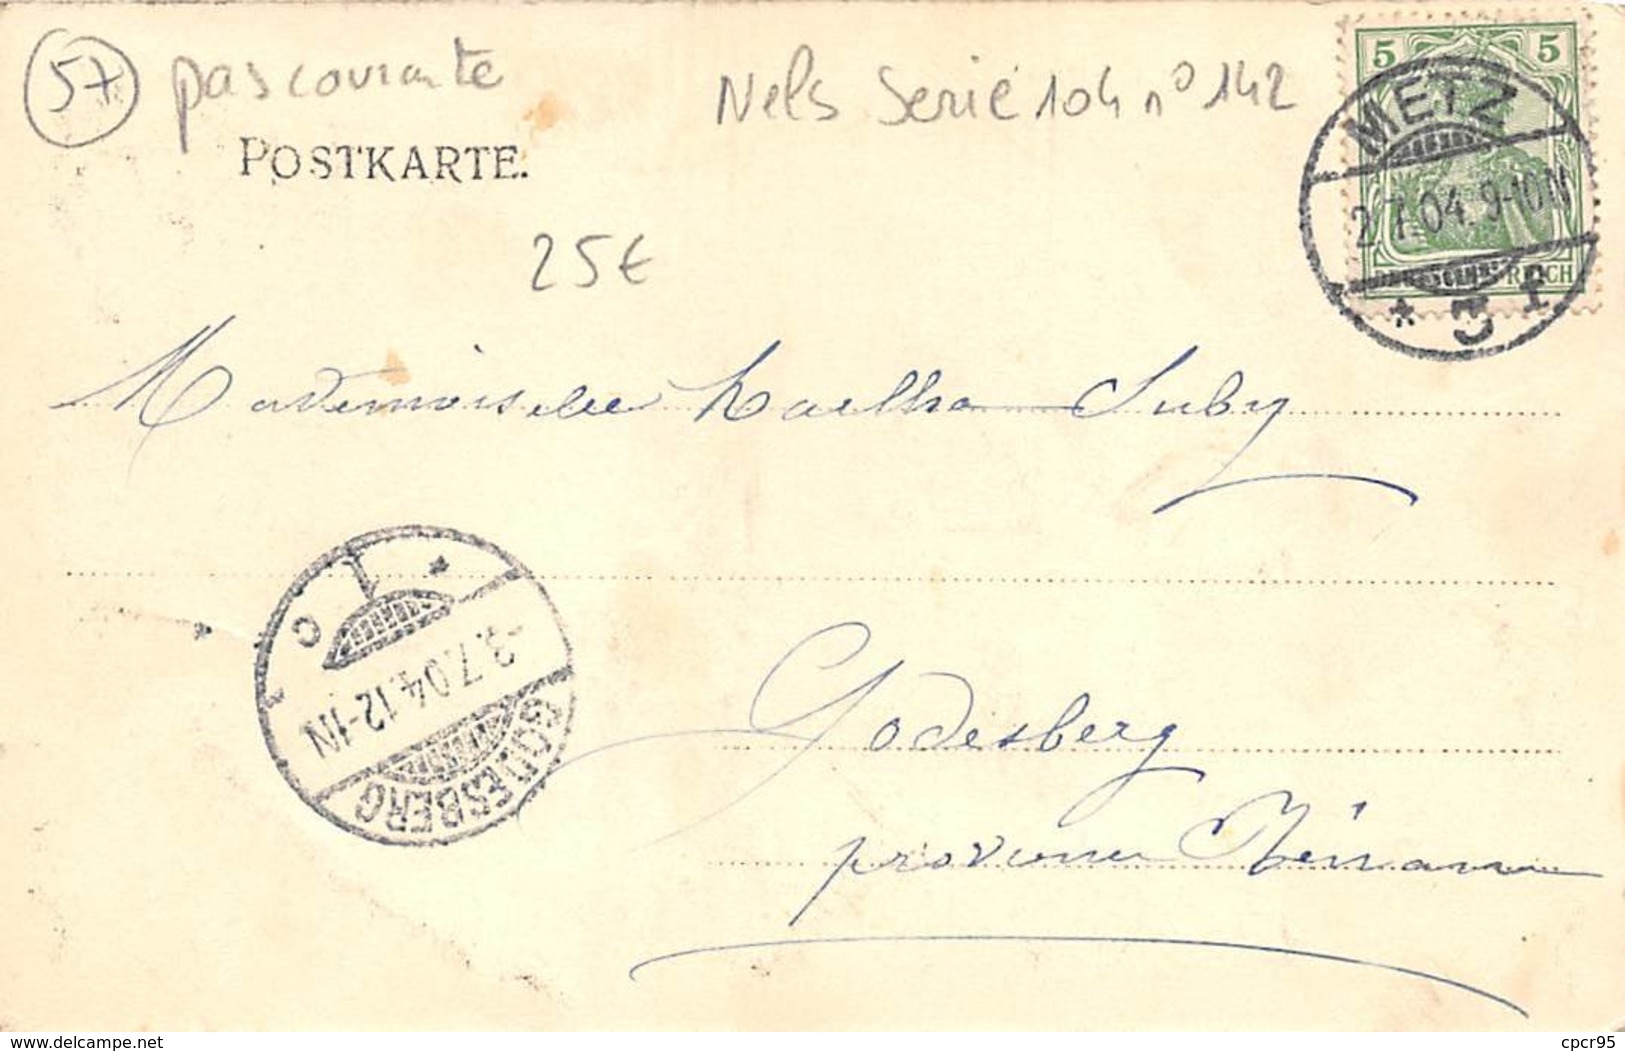 57 pas courante
Nels Serie 104 n° 142
POSTKARTE.
25€
5 5
METZ
2.7.04. 9-10N
REICH
* 3 f
Mademoiselle Suby
* 1 c
3.7.04.12-1N
GODESBERG
Godesberg
province Rhénane
www.delcampe.net
cpcr95